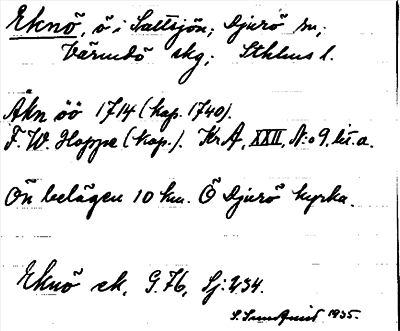 Eknö, ö i Saltsjön; Djurö sn;
Värmdö skg; Sthlms l.
Åkn öö 1714 (kop. 1740).
F. W. Hoppe (kop.). KrA, XXII, N:o 9, lit. a.
Ön belägen 10 km. Ö Djurö kyrka.
Eknö sk. G. 76, Sj: 234.
S. Sundquist 1935.